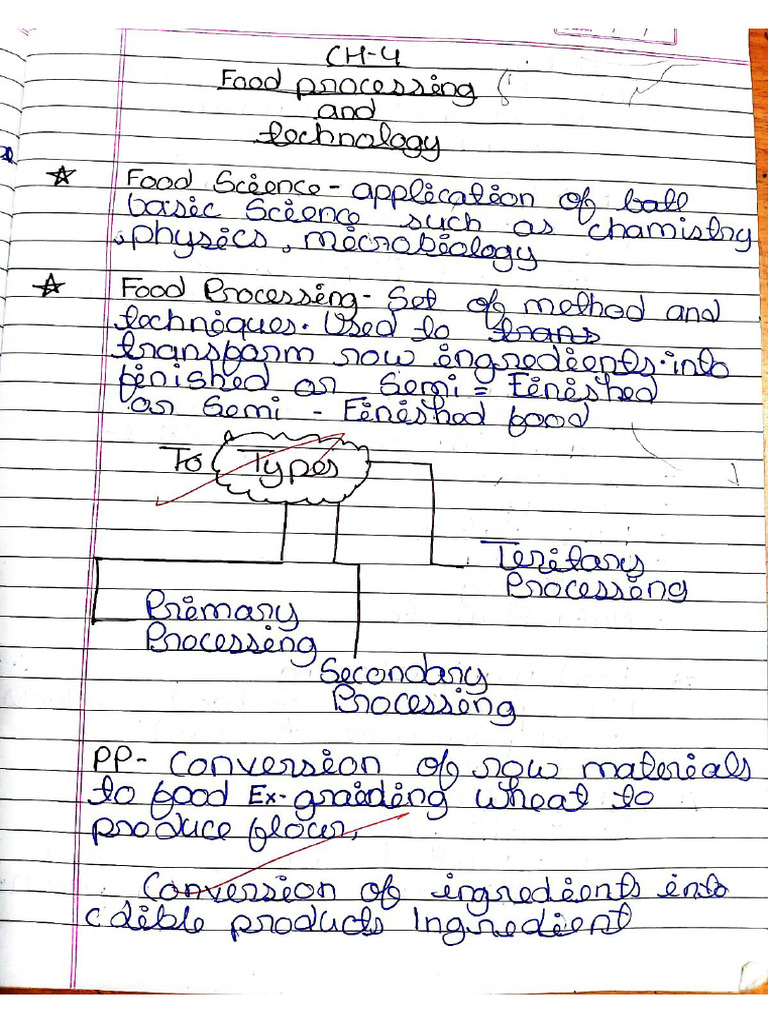 CH-4
Food processing
and
technology
Food Science - application of ball
basic Science such as chamistry
, physics, microbiology
Food Processing - Set of method and
techniques. Used to trans
transform row ingredients. into
finished or Semi = Finished
or Semi - Finished food
To Types
Teritary
Processing
Primary
Processing
Secondary
Processing
PP- Conversion of row materials
to food Ex- graiding wheat to
produce flour,
Conversion of ingredients into
edible products Ingredient